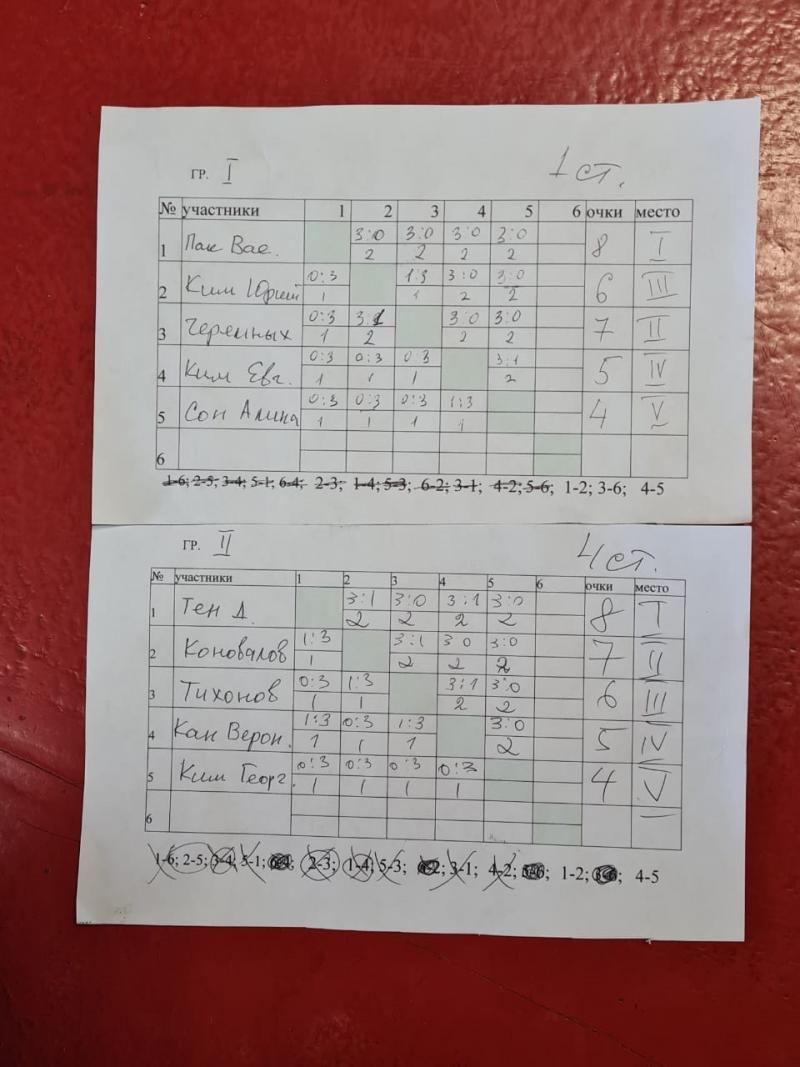 ГР. I 1 ст.
№ участники 1 2 3 4 5 6 очки место
1 Пак Вас. 3:0 3:0 3:0 3:0 8 I
2 2 2 2
2 Ким Юрий 0:3 1:3 3:0 3:0 6 III
1 1 2 2
3 Черемных 0:3 3:1 3:0 3:0 7 II
1 2 2 2
4 Ким Евг. 0:3 0:3 0:3 3:1 5 IV
1 1 1 2
5 Сон Алина 0:3 0:3 0:3 1:3 4 V
1 1 1 1
6
1-6; 2-5; 3-4; 5-1; 6-4; 2-3; 1-4; 5-3; 6-2; 3-1; 4-2; 5-6; 1-2; 3-6; 4-5
ГР. II 4 ст.
№ участники 1 2 3 4 5 6 очки место
1 Тен Д. 3:1 3:0 3:1 3:0 8 I
2 2 2 2
2 Коновалов 1:3 3:1 3 0 3:0 7 II
1 2 2 2
3 Тихонов 0:3 1:3 3:1 3:0 6 III
1 1 2 2
4 Кан Верон. 1:3 0:3 1:3 3:0 5 IV
1 1 1 2
5 Ким Георг. 0:3 0:3 0:3 0:3 4 V
1 1 1 1
6
1-6; 2-5; 3-4; 5-1; 2-3; 1-4; 5-3; 3-1; 4-2; 1-2; 4-5